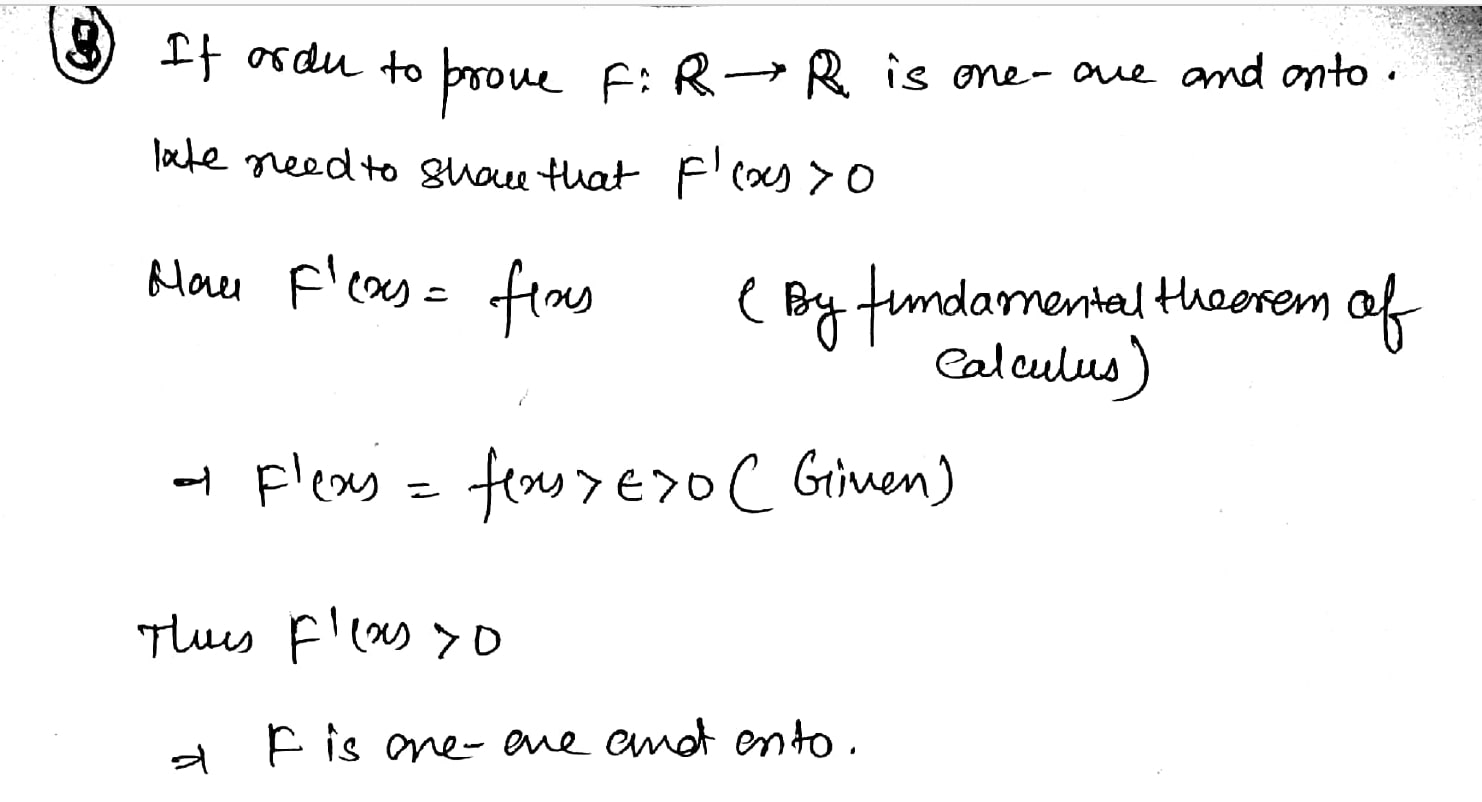 ③ If order to prove F: R → R is one-one and onto.
We need to show that F'(x) > 0
Now F'(x) = f(x) (By fundamental theorem of
Calculus)
⇒ F'(x) = f(x) > ε > 0 (Given)
Thus F'(x) > 0
⇒ F is one-one and onto.